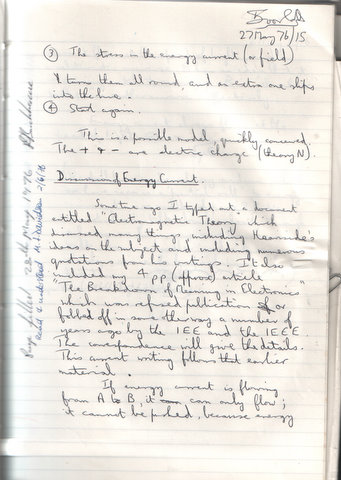 27 May 76/15
③ The stress in the energy current (or field)
turns them all round, and an extra one slips
into the line.
④ Start again.
This is a possible model, quickly conceived.
The + & - are electric charge (theory N).
Dimension of Energy Current.
Some time ago I typed out a document
entitled "Electromagnetic Theory" which
discussed many things, including Heaviside's
ideas on the subject and including numerous
quotations from his writings. It also
included my 4 pp (approx) article
"The Breakdown of Meaning in Electronics"
which was refused publication or
fobbed off in some other way a number of
years ago by the IEE and the IEEE.
The correspondence will give the details.
This current writing follows that earlier
material.
If energy current is flowing
from A to B, it can only flow;
it cannot be pushed, because energy
Page filled 28th May 1976
Read & understood M. F. Davidson 2/6/76